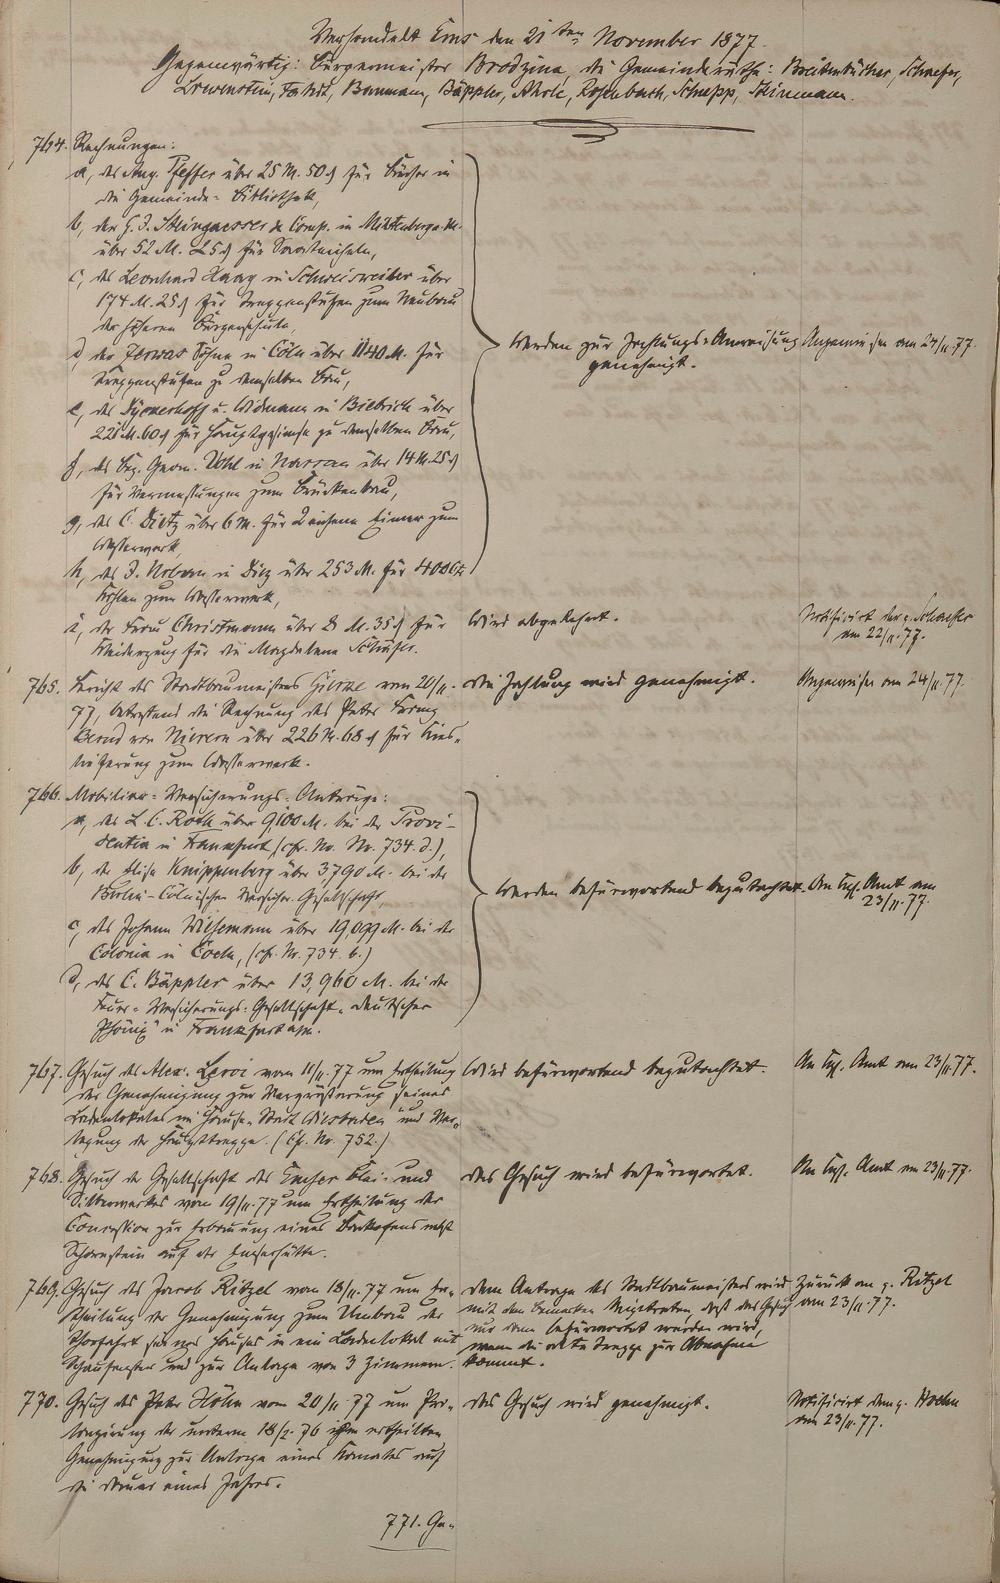 Verhandelt Ems den 21ten November 1877.
Gegenwärtig: Bürgermeister Brodzina, die Gemeinderäthe: Schaefer,
Loewenstein, Baumann, Bäppler, Rosenbach, Schupp, Steinmann.
764. Rechnungen:
a, des Aug. Pfeffer über 25 M. 50 ₰ für Bücher in
die Gemeinde-Bibliothek,
b, der G. J. Steingaesser & Comp. in Miltenberg a. M.
über 52 M. 25 ₰ für
c, des Leonhard Haag in Schweisweiler über
174 M. 25 ₰ für Treppenstufen zum Neubau
der höheren Bürgerschule,
d, der Söhne in Cöln über 1140 M. für
Treppenstufen zu demselben Bau,
e, der Dyckerhoff u. Widmann in Biebrich über
221 M. 60 ₰ für Hauptgesimse zu demselben Bau,
f, des Bez. Geom. Vohl in Nassau über 14 M. 25 ₰
für Vermessungen zum Brückenbau,
g, des C. Dietz über 6 M. für 2 Eimer zum
Wasserwerk,
h, des J. in Diez über 253 M. für 400 Ctr
Kohlen zum Wasserwerk,
werden zur Zahlungs-Anweisung
genehmigt.
Angewiesen am 24/11.77.
i, der Frau Christmann über 8 M. 35 ₰ für
Kleiderzeug für die Magdalena Schäfer.
Wird abgelehnt.
Notificirt der p. Schaefer
am 22/11.77.
765. Bericht des Stadtbaumeisters vom 20/11.
77, betreffend die Rechnung des Peter
Bernd von Nievern über 226 M. 68 ₰ für Kies-
lieferung zum Wasserwerk.
Die Zahlung wird genehmigt.
Angewiesen am 24/11.77.
766. Mobiliar-Versicherungs-Anträge:
a, des L. C. Roth über 9,100 M. bei der Provi-
dentia in Frankfurt, (cfr. No. 734. d.),
b, der Elise Knippenberg über 3,790 M. bei der
Berlin-Cölnischen Versicher. Gesellschaft,
c, des Johann Wiesemann über 19,099 M. bei der
Colonia in Coeln, (cfr. Nr. 734. b.)
d, des C. Bäppler über 13,960 M. bei der
Feuer-Versicherungs-Gesellschaft „Deutscher
Phönix“ in Frankfurt a/M.
werden befürwortend begutachtet.
An Kgl. Amt am
23/11.77.
767. Gesuch des Alex. Leroi vom 11/11.77 um Ertheilung
der Genehmigung zur Vergrößerung seines
Ladenlokales im Hause „Stadt Wiesbaden“ und Ver-
legung der Haupttreppe. (Cf. No. 752.)
Wird befürwortend begutachtet.
An Kgl. Amt am 23/11.77.
768. Gesuch der Gesellschaft des Emser Blei- und
Silberwerkes vom 19/11.77 um Ertheilung der
Concession zur Erbauung eines Backofens nebst
Schornstein auf der Emserhütte.
Das Gesuch wird befürwortet.
An Kgl. Amt am 23/11.77.
769. Gesuch des Jacob Ritzel vom 18/11.77 um Er-
theilung der Genehmigung zum Umbau der
Thorfahrt seines Hauses in ein Ladenlokal mit
Schaufenster und zur Anlage von 3 Zimmern.
Dem Antrage des Stadtbaumeisters wird
mit dem Bemerken beigetreten, daß das Gesuch
nur dann befürwortet werden wird,
wenn die alte Treppe zur Abnahme
kommt.
Zurück an p. Ritzel
am 23/11.77.
770. Gesuch des Peter Höhn vom 20/11.77 um Pro-
longirung der unterm 18/2.76 ihm ertheilten
Genehmigung zur Anlage eines Kamates auf
die Dauer eines Jahres.
Das Gesuch wird genehmigt.
Notificirt dem p. Hoehn
am 23/11.77.
771. Ge-